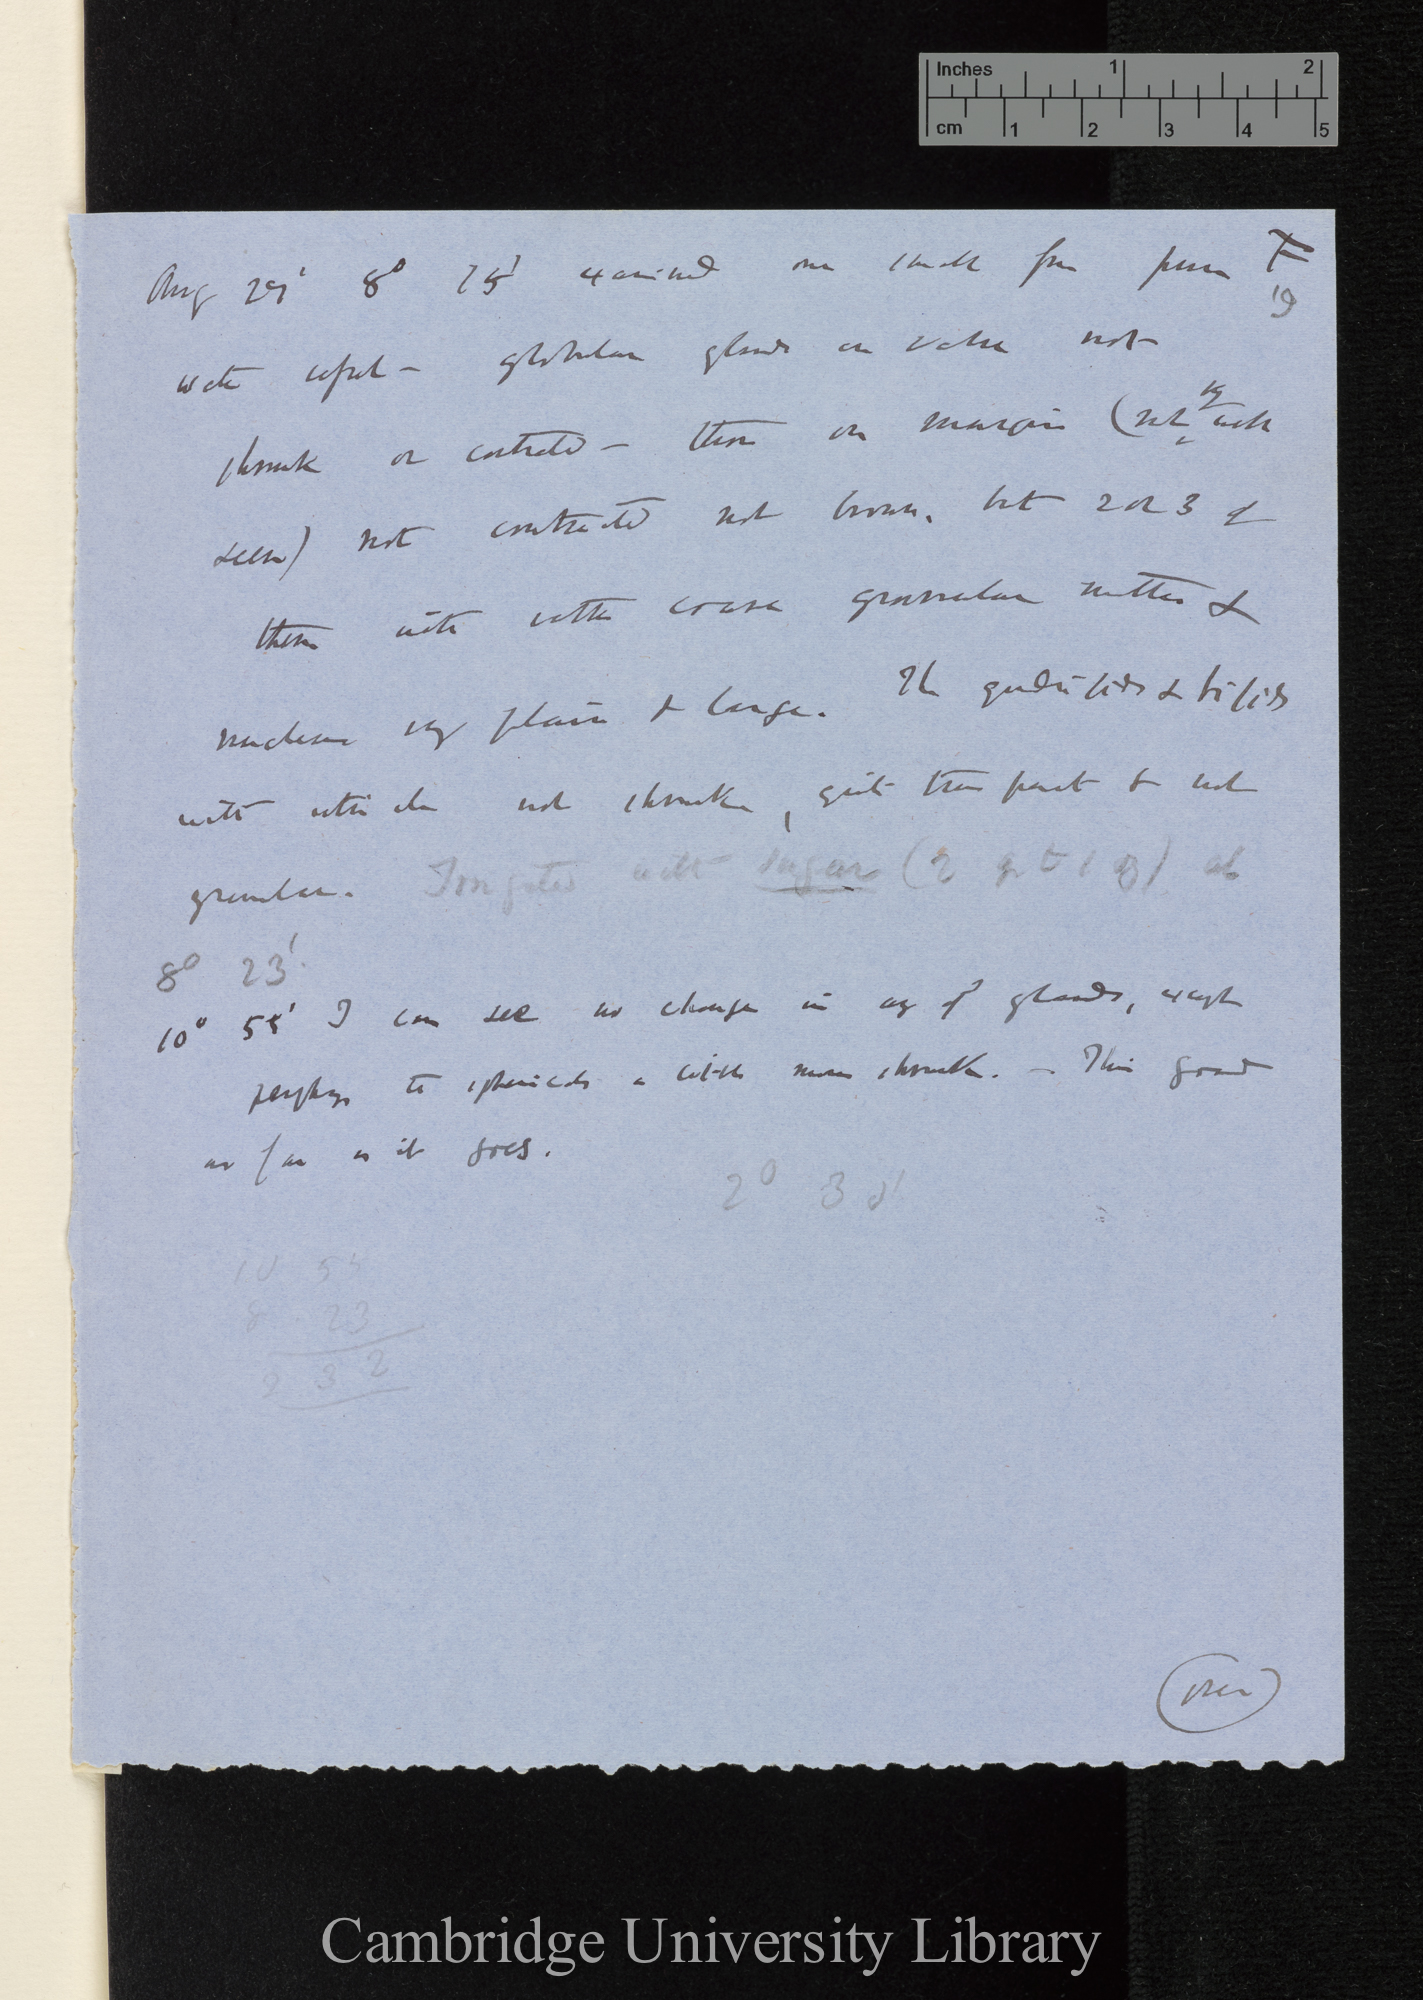 Inches 1 2
cm 1 2 3 4 5
F
19
Aug 29' 8° 15' examined one small from pure
water upset — globular glands on valve not
shrunk or contracted — those on margin (not very well
seen) not contracted not brown, but 2 or 3 of
them with rather coarse granular matter &
nucleus very plain & large. The quadrifids & bifids
with utricle not shrunk, quite transparent & not
granular. Irrigated with sugar (2 gr to 1 oz) at
8° 23'
10° 55' I can see no change in any of glands, except
perhaps to sphericals a little more shrunk. — This good
as far as it goes.
2° 3
10 55
8 23
2 32
(over)
Cambridge University Library